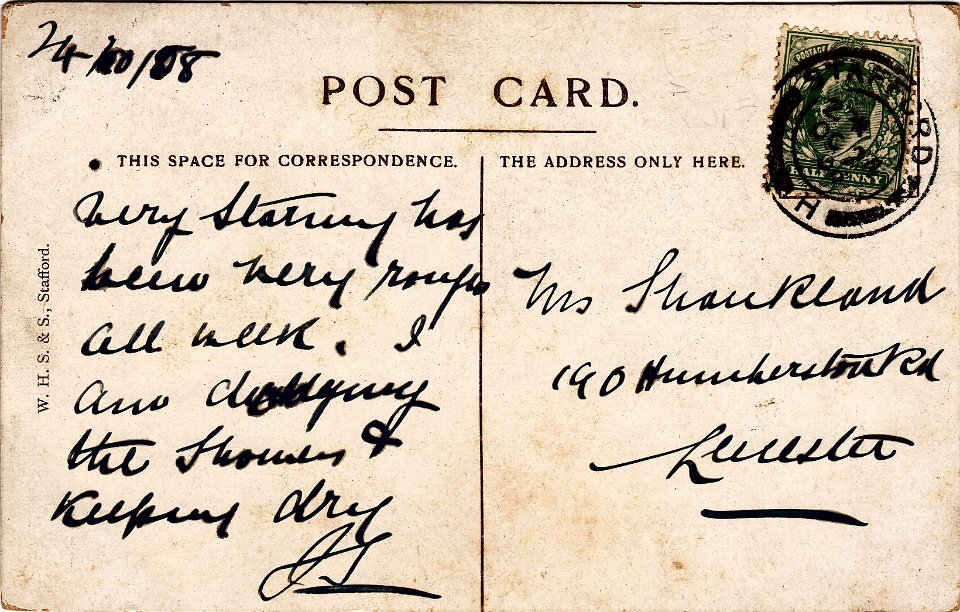 24/10/08
POST CARD.
THIS SPACE FOR CORRESPONDENCE.
Very Stormy has
been very rough
all week. I
am dodging
the Showers &
Keeping dry
JS
THE ADDRESS ONLY HERE.
Mrs Shankland
190 Humberstone Rd
Leicester
W. H. S. & S., Stafford.
POSTAGE
HALFPENNY
STAFFORD
OC 24